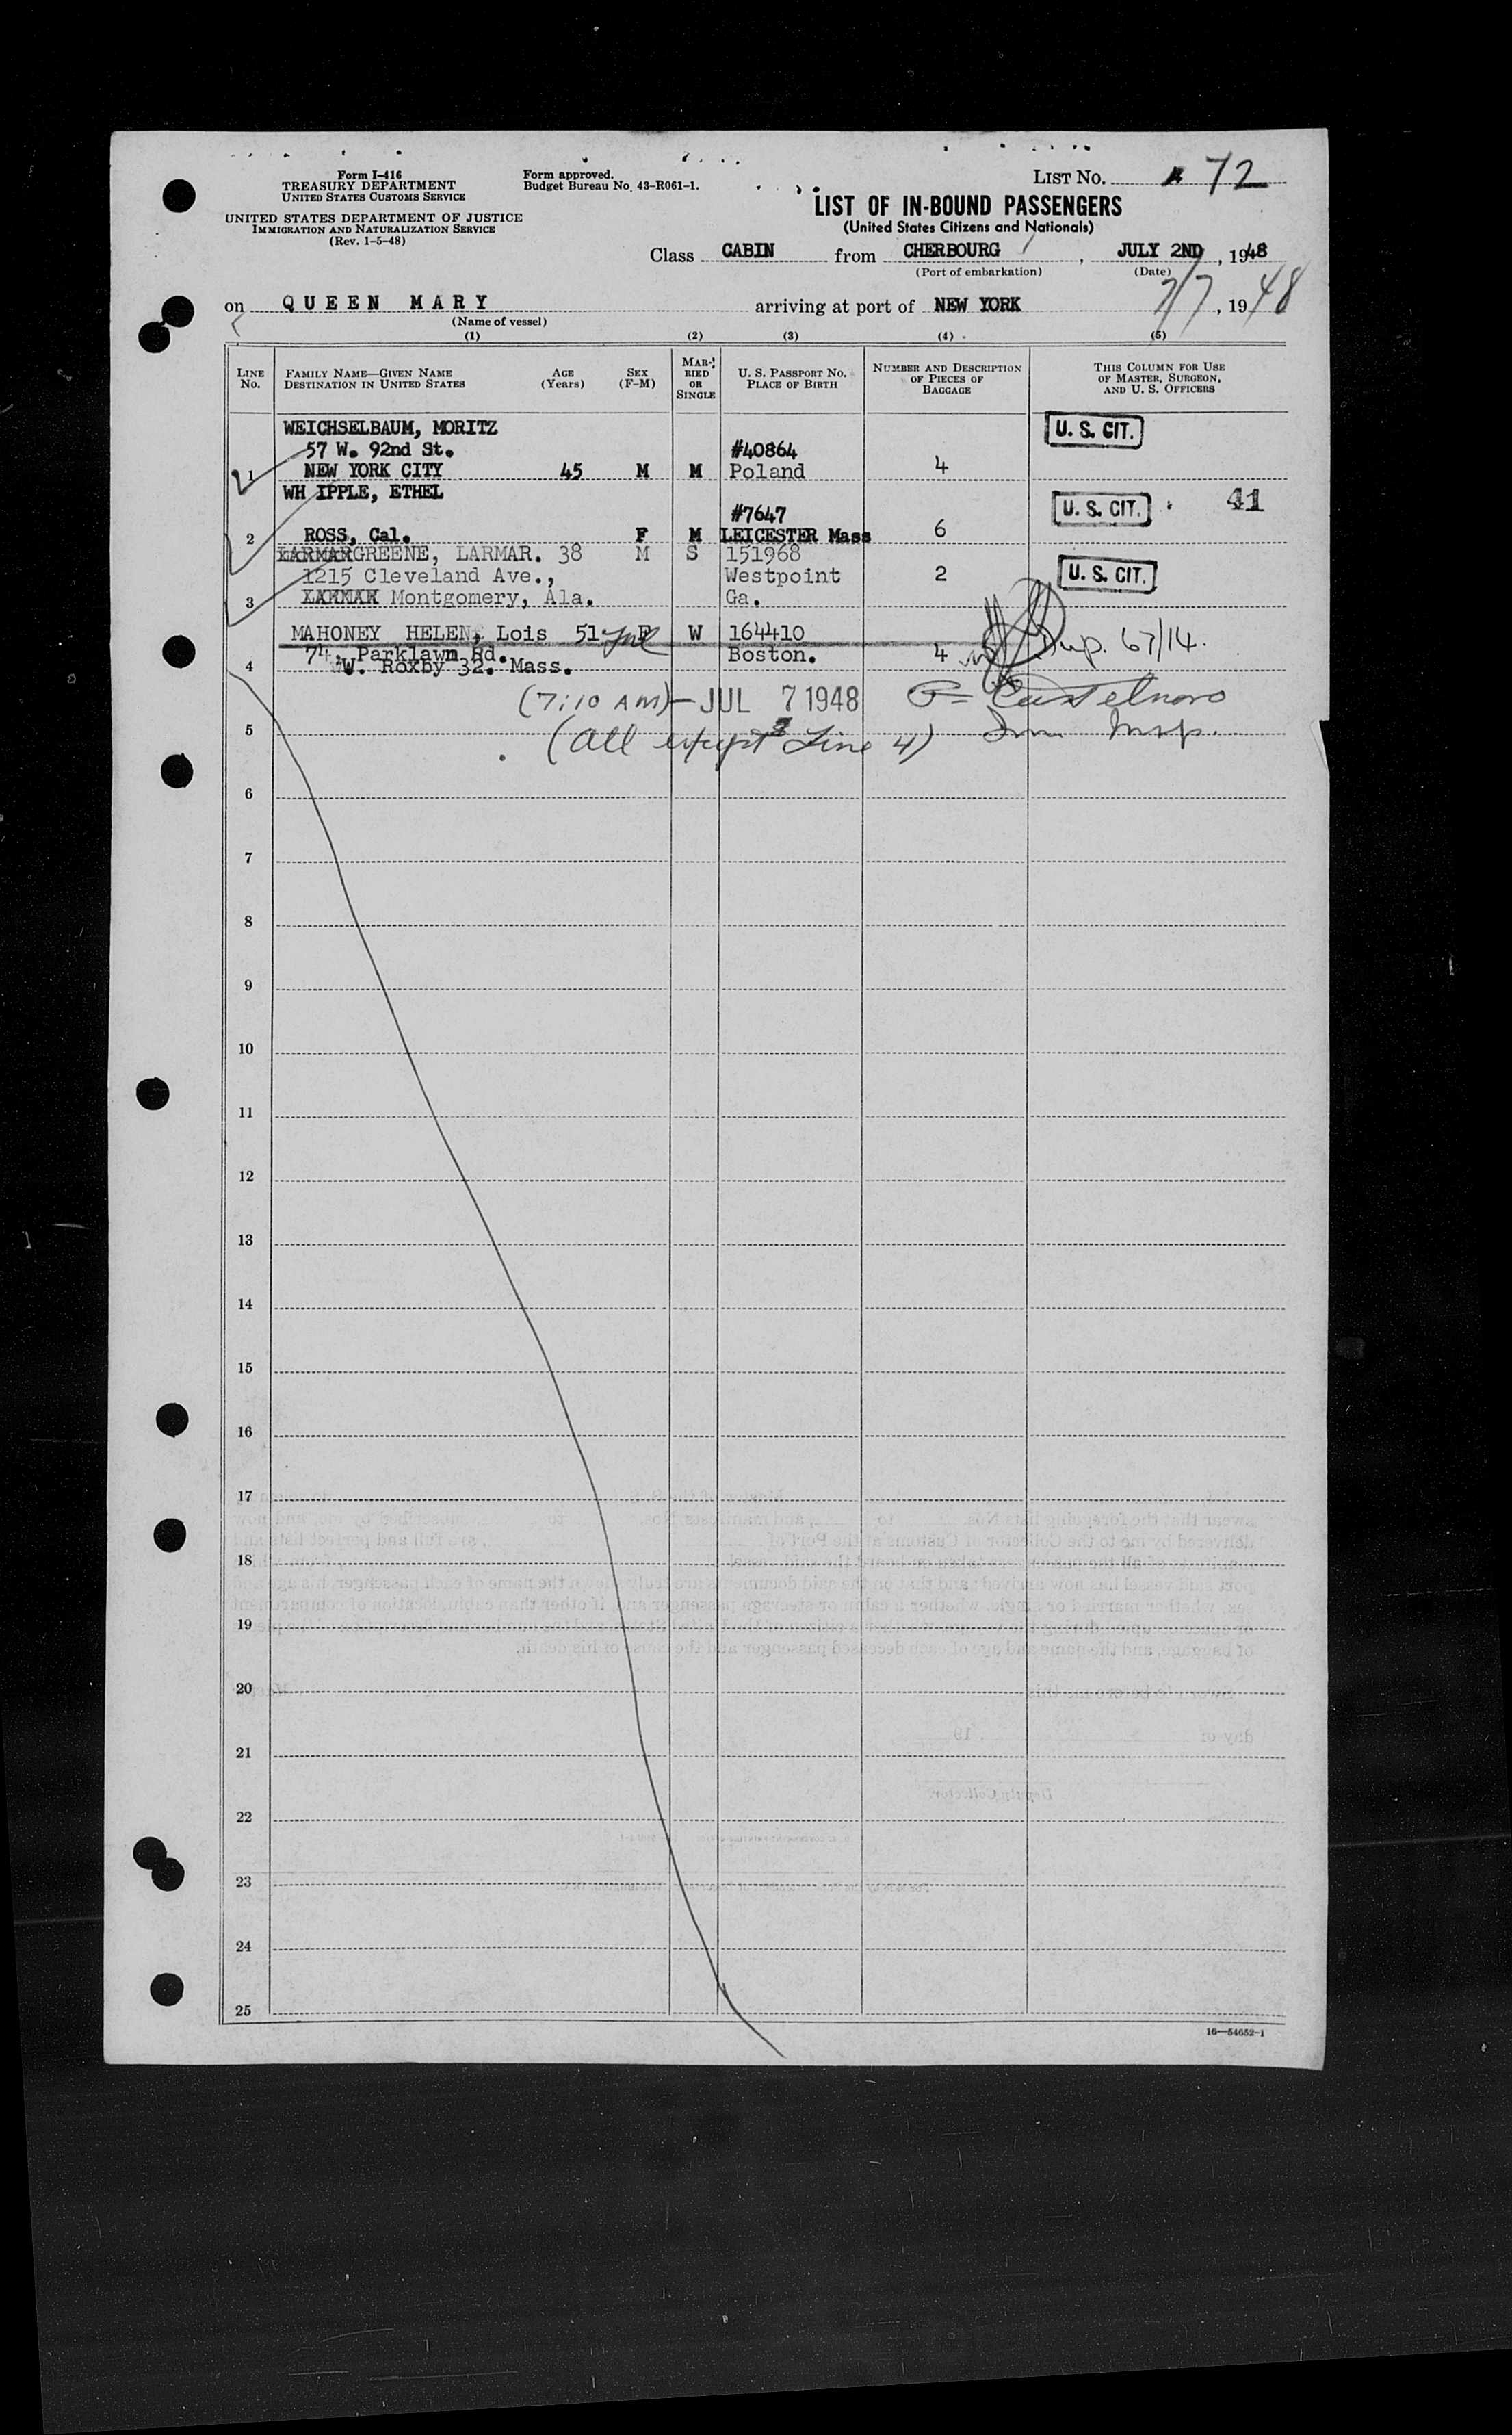 Form I-416
TREASURY DEPARTMENT
UNITED STATES CUSTOMS SERVICE
UNITED STATES DEPARTMENT OF JUSTICE
IMMIGRATION AND NATURALIZATION SERVICE
(Rev. 1-5-48)
Form approved.
Budget Bureau No. 43-R061-1.
LIST NO. 72
LIST OF IN-BOUND PASSENGERS
(United States Citizens and Nationals)
Class CABIN from CHERBOURG, JULY 2ND, 1948
(Port of embarkation) (Date)
on QUEEN MARY arriving at port of NEW YORK 7/7, 1948
(Name of vessel)
(1) (2) (3) (4) (5)
LINE No. FAMILY NAME—GIVEN NAME DESTINATION IN UNITED STATES AGE (Years) SEX (F-M) MARRIED OR SINGLE U. S. PASSPORT NO. PLACE OF BIRTH NUMBER AND DESCRIPTION OF PIECES OF BAGGAGE THIS COLUMN FOR USE OF MASTER, SURGEON, AND U. S. OFFICERS
WEICHSELBAUM, MORITZ U. S. CIT.
57 W. 92nd St. #40864
1 NEW YORK CITY 45 M M Poland 4
WH IPPLE, ETHEL
#7647 U. S. CIT. 41
2 ROSS, Cal. F M LEICESTER Mass 6
GREENE, LARMAR. 38 M S 151968
1215 Cleveland Ave., Westpoint 2 U. S. CIT.
3 Montgomery, Ala. Ga.
MAHONEY HELEN, Lois 51 F W 164410
74, Parklawn Rd. Boston. 4 Dup. 67/14.
4 W. Roxby 32. Mass.
(7:10 AM) — JUL 7 1948
5 (All except Line 4)
6
7
8
9
10
11
12
13
14
15
16
17
18
19
20
21
22
23
24
25
16—54652-1